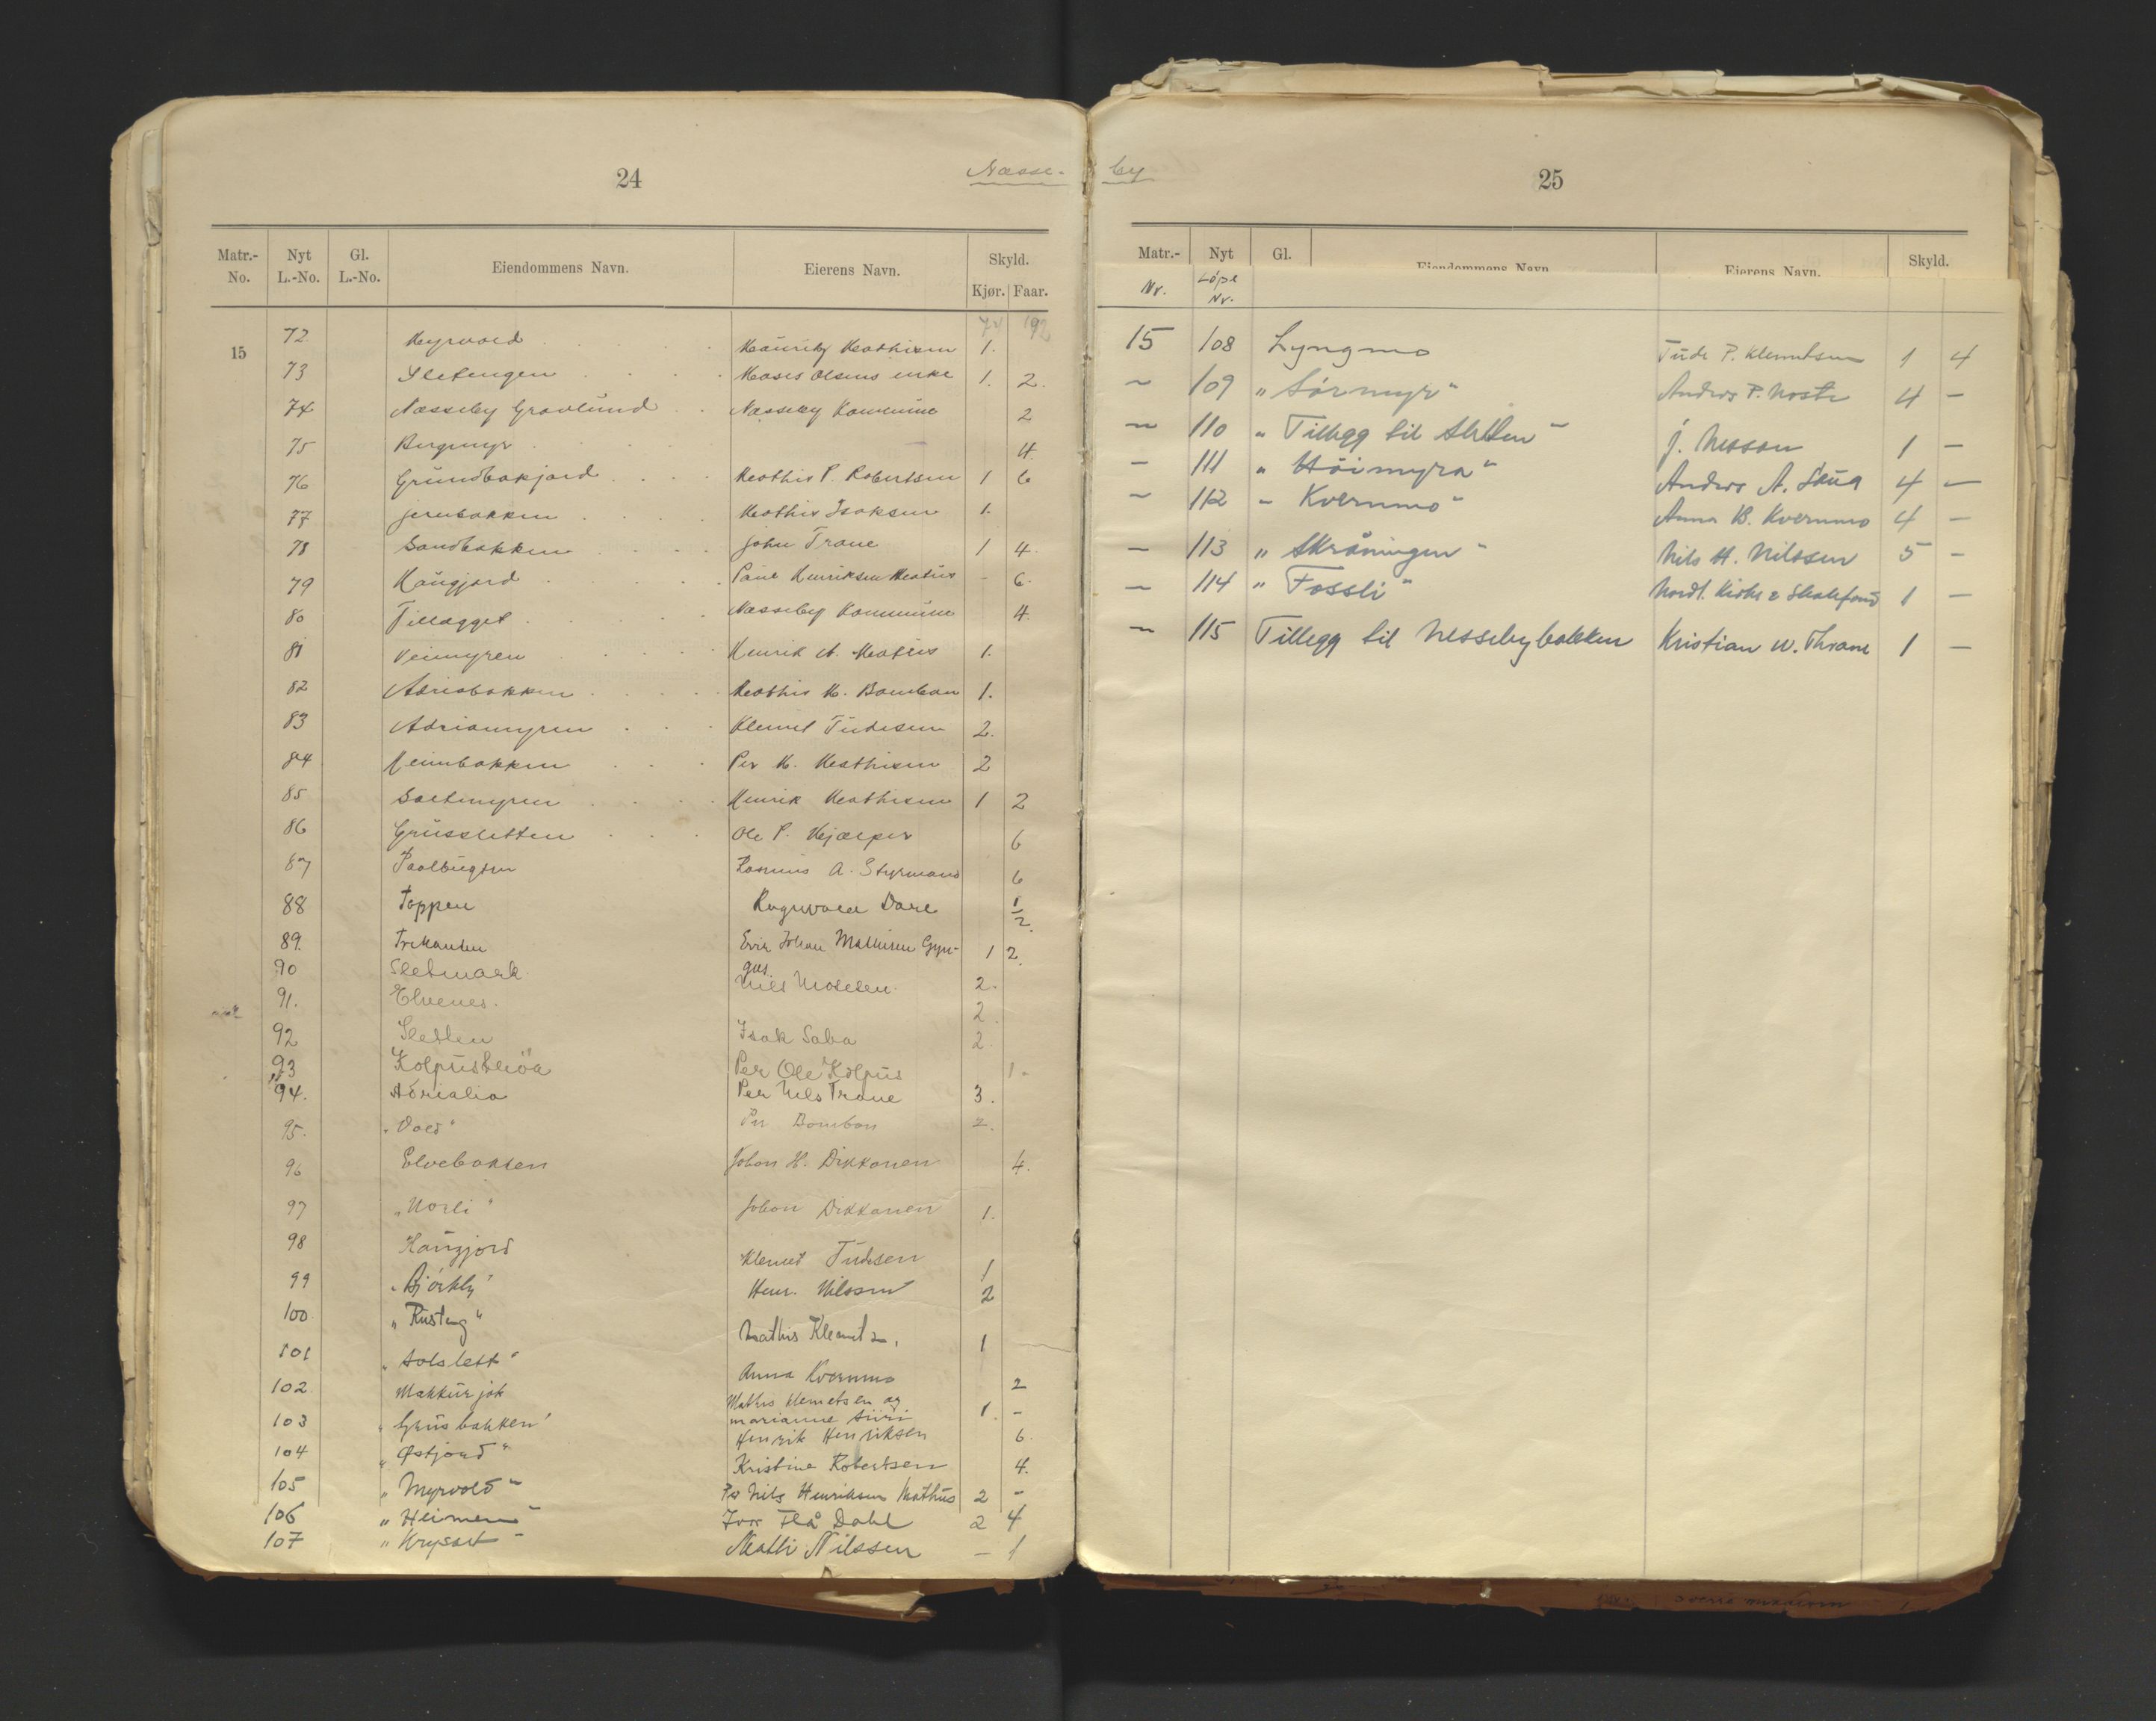 24
Næsse-
Matr.- No. Nyt L.-No. Gl. L.-No. Eiendommens Navn. Eierens Navn. Skyld. Kjør. Faar.
15 72 Myrvold Mathisen 1.
73 Sletengen Moses Olsens enke 1. 2.
74 Næsseby Gravlund Næsseby Kommune 2
75 Bergmyr — 4.
76 Grundbakjord Mathis P. Robertsen 1 6
77 Mathis Isaksen 1.
78 Sandbakken John Trane 1 4.
79 Haugjord Henriksen Mathis - 6.
80 Tillægget Næsseby Kommune 4.
81 Veimyren Henrik A. Mathis 1.
82 Adrisbakken Mathis M. Bomban 1.
83 Adriamyren Klemet Tudesen 2.
84 Per M. Mathisen 2
85 Henrik Mathisen 1 2
86 Grussletten Ole P. Kjelper 6
87 Rasmus A. Styrmand 6
88 Toppen Ragnvald Dahl 1/2.
89. Trekanten Erik Johan Mathisen 1 2.
90 Sletmark Nils Mosesen. 2.
91. Elvenes. 2.
92 Sletten Isak Saba 2.
93 Per Ole Kolpus 1.
94. Adrialia Per Nils Trane 3.
95. „Vold" Per Bomban 2.
96 Elvebakken Johan H. Dikkanen 4.
97 „Norli" Johan Dikkanen 1.
98 Haugjord Klemet Tudesen 1
99 „Björkly" Henr. Nilssen 2
100 „Rusteng" Mathis Klemets. 1
101 „Solslett" Anna Kvernmo 2
102 Makkurjok Mathis Klemetsen og
marianne Siiri 1. -
103 „Grusbakken" Henrik Henriksen 6.
104 „Østjord" Kristine Robertsen 4.
105 „Myrvold" Per Nils Henriksen Mathis 2 -
106 „Heimen" Flå Dahl 2 4
107 „Krysset" Math. Nilssen - 1
by
25
Matr.- Nyt Gl. Eiendommens Navn. Eierens Navn. Skyld.
Nr. Löpe
Nr.
15 108 Lyngmo Tude P. Klemetsen 1 4
~ 109 „Sörmyr" Anders P. Noste 4 -
~ 110 „Tillegg til Sletten" J. Nesson 1 -
- 111 „Höimyra" Anders A. 4 -
~ 112 „Kvernmo" Anna B. Kvernmo 4 -
- 113 „Skråningen" Nils H. Nilssen 5 -
- 114 „Fossli" Nordl. Kirke & 1 -
~ 115 Tillegg til Nessebybakken Kristian W. Thrane 1 -